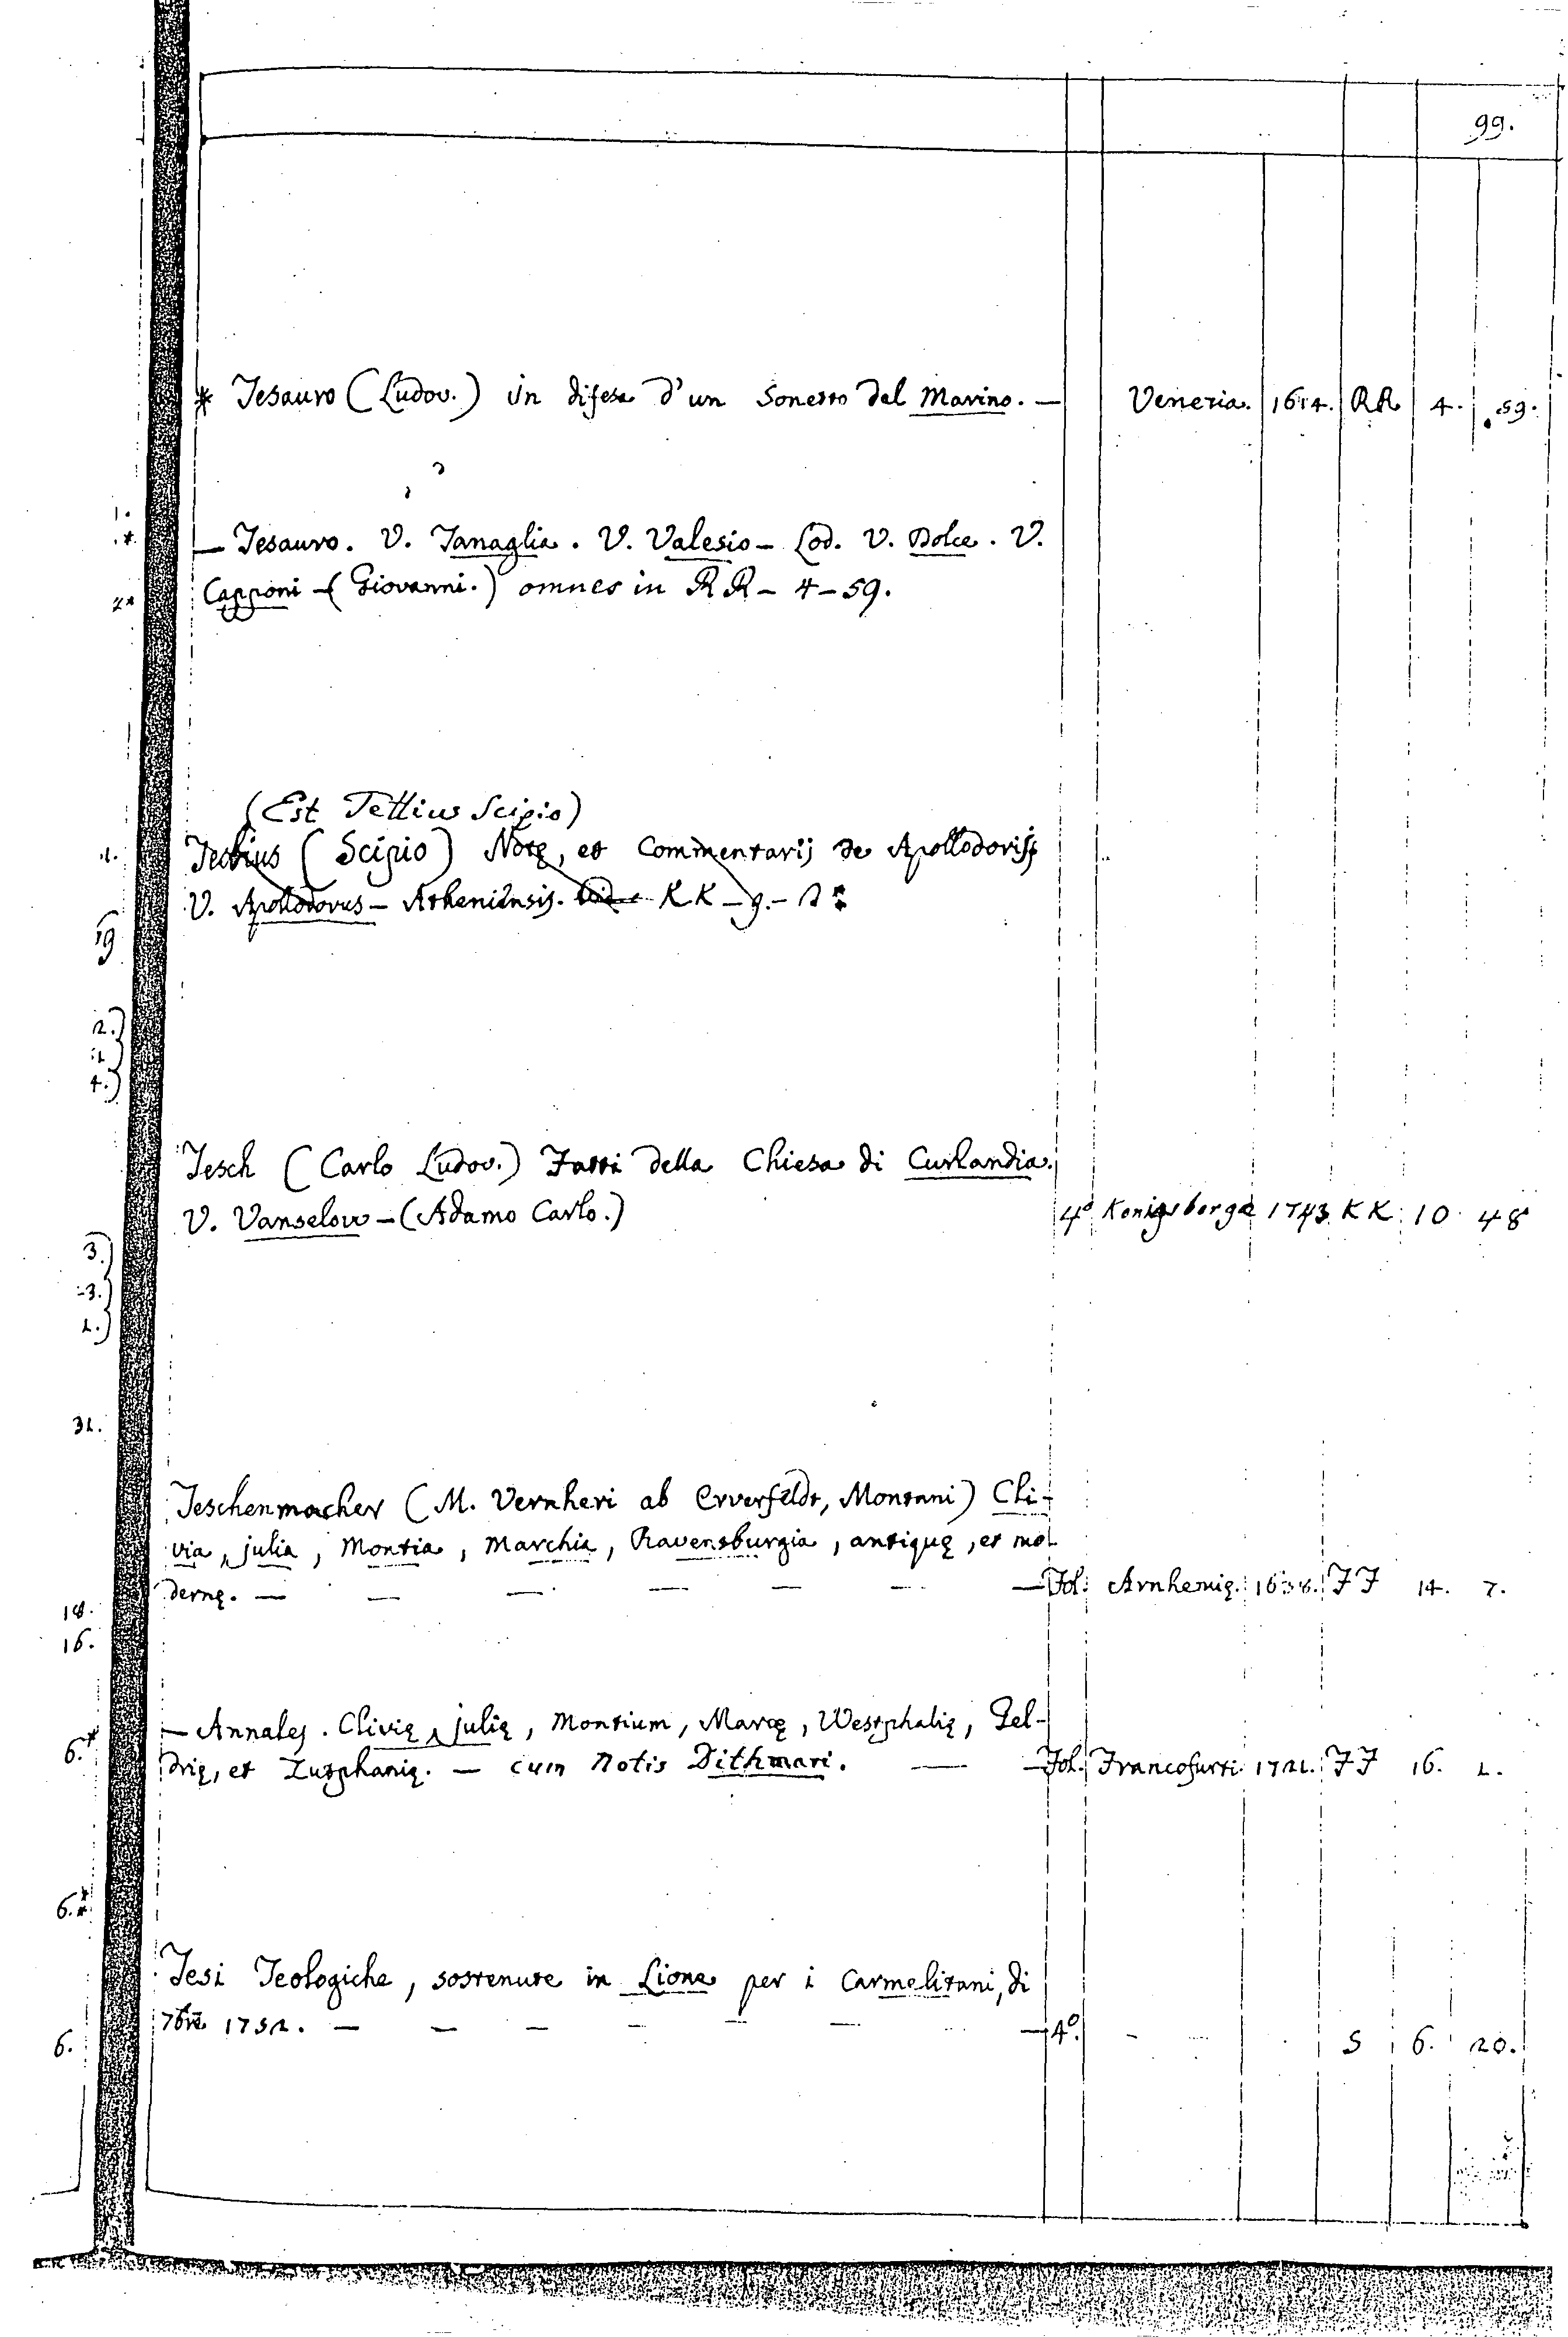 99.
* Tesauro (Ludov.) in difesa d'un Sonetto del Marino. — Venezia. 1614. RR 4. 59.
— Tesauro. V. Tanaglia. V. Valesio – Lod. V. Dolce. V.
Capponi – (Giovanni.) omnes in RR – 4 – 59.
(Est Tettius Scipio)
(Scipio) Notę, et Commentarij de Apollodoris
V. Apollodorus – Atheniensis. KK – 9. –
Tesch (Carlo Ludov.) Fatti della Chiesa di Curlandia.
V. Vanselow – (Adamo Carlo.) 4º Konigsberga 1743 KK 10 48
Teschenmacher (M. Vernheri ab Erverfeldt, Montani) Cli-
via, julia, Montia, Marchia, Ravensburgia, antiquę, et mo-
dernę. — — — — — — — Fol. Arnhemię. 1638. FF 14. 7.
— Annales. Clivię, julię, Montium, Marcę, Westphalię, Gel-
drię, et Zutphanię. — cum Notis Dithmari. — — Fol. Francofurti 1721. FF 16. 2.
Tesi Teologiche, sostenute in Lione per i Carmelitani, di
7bre 1752. — — — — — — — 4º. S 6. 20.